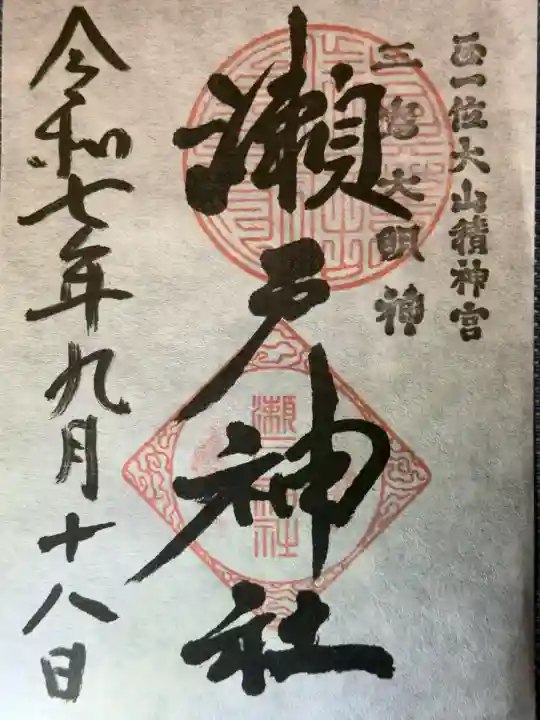 正一位大山積神宮
三嶌大明神
瀬戸神社
令和七年九月十八日